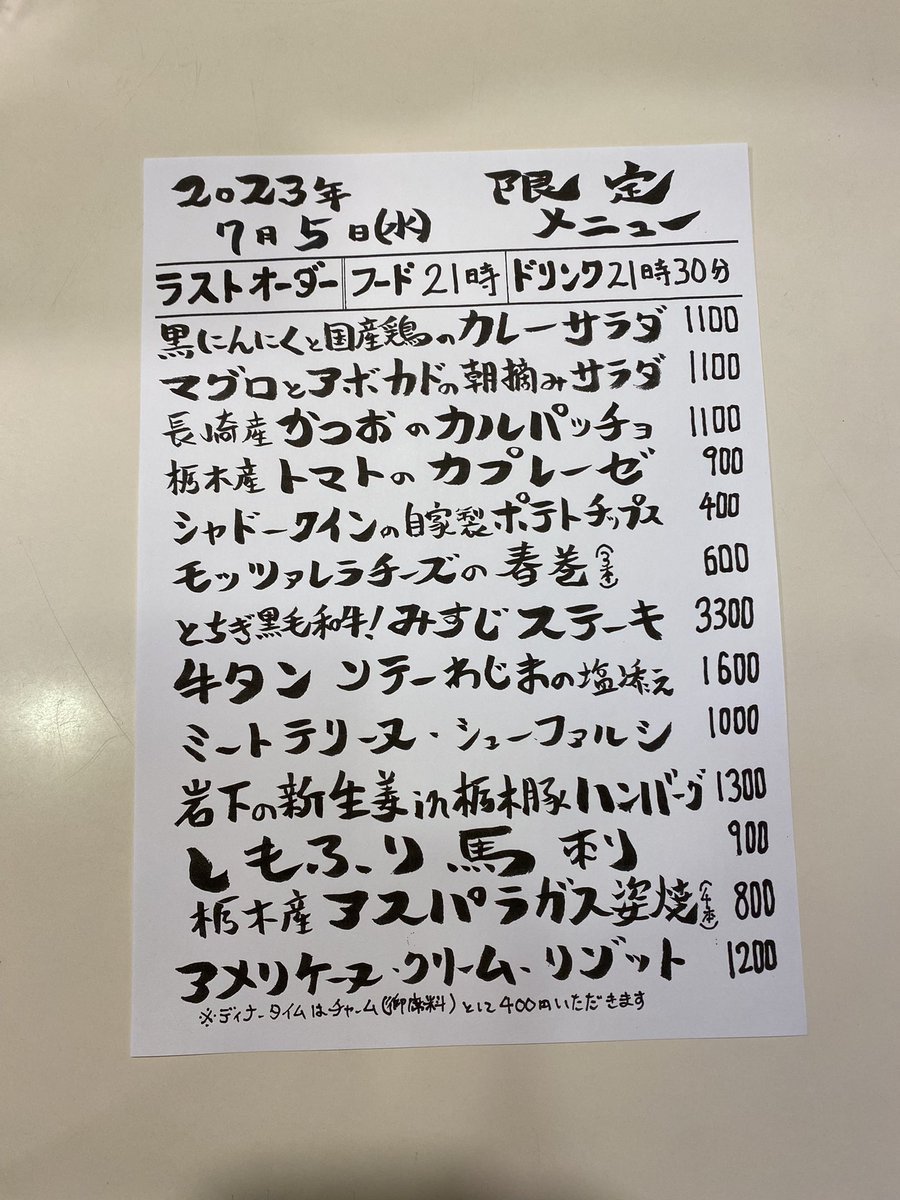 2023年 限定
7月5日(水) メニュー
ラストオーダー フード21時 ドリンク21時30分
黒にんにくと国産鶏のカレーサラダ 1100
マグロとアボカドの朝摘みサラダ 1100
長崎産かつおのカルパッチョ 1100
栃木産トマトのカプレーゼ 900
シャドークインの自家製ポテトチップス 400
モッツァレラチーズの春巻(3本) 600
とちぎ黒毛和牛!みすじステーキ 3300
牛タン ソテーわじまの塩添え 1600
ミートテリーヌ・シューファルシ 1000
岩下の新生姜in栃木豚ハンバーグ 1300
しもふり馬刺 900
栃木産アスパラガス姿焼(4本) 800
アメリケーヌ・クリーム・リゾット 1200
※ディナータイムはチャーム(御席料)として400円いただきます